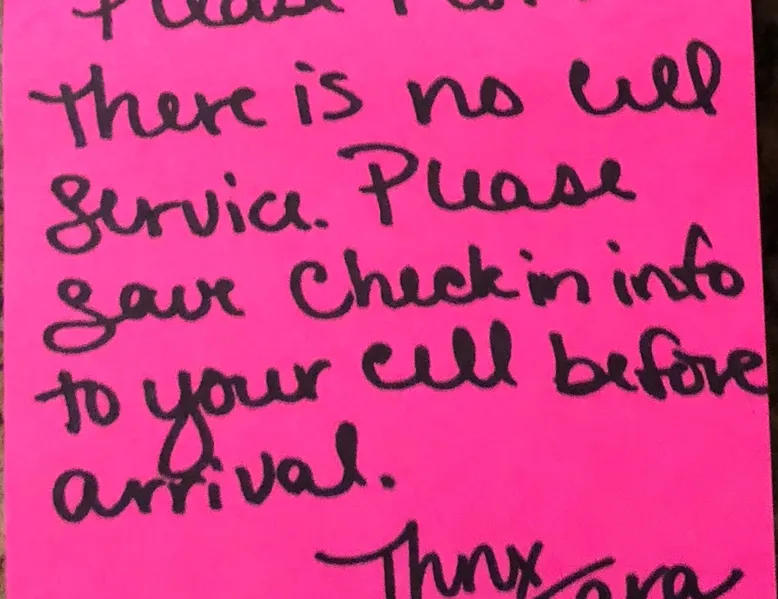 Please
There is no cell
service. Please
save Check in info
to your cell before
arrival.
Thnx